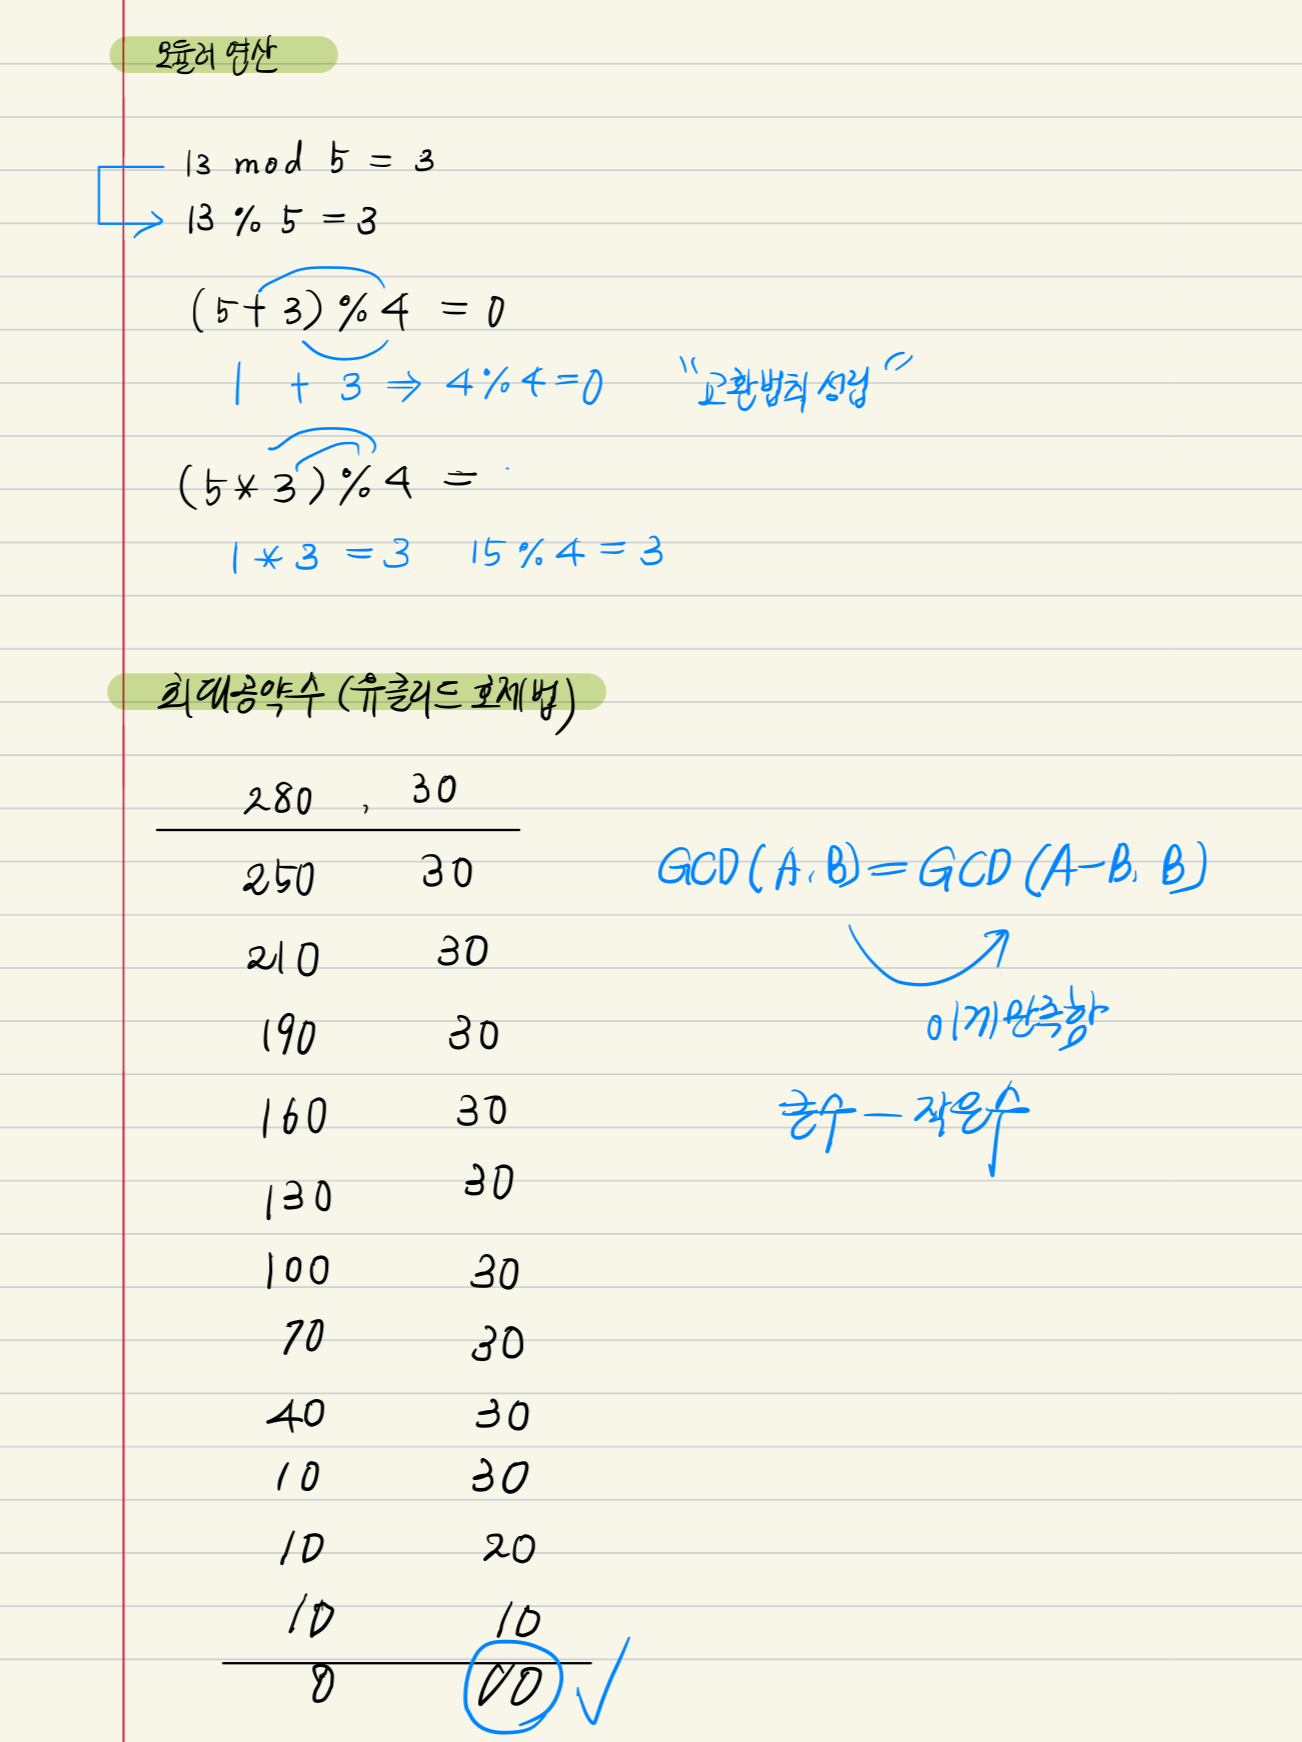 모듈러 연산
13 mod 5 = 3
13 % 5 = 3
(5+3)%4 = 0
1 + 3 ⇒ 4%4=0 "교환법칙 성립"
(5*3)%4 =
1*3 = 3 15%4=3
최대공약수 (유클리드 호제법)
280 , 30
250 30
GCD(A,B)=GCD(A-B, B)
210 30
190 30
이게 만족함
160 30
큰수 - 작은수
130 30
100 30
70 30
40 30
10 30
10 20
10 10
0 10